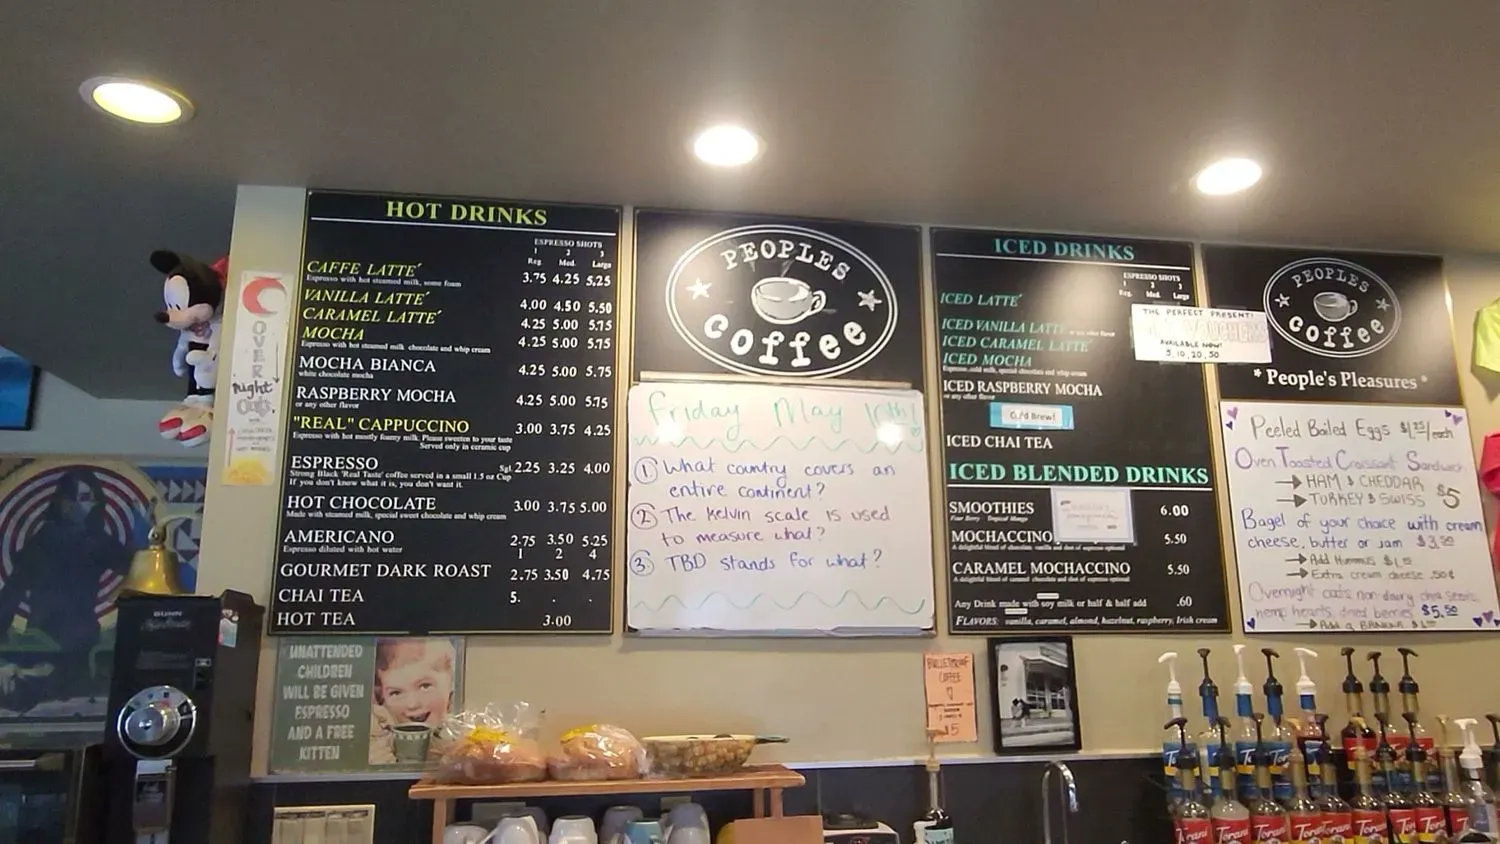 HOT DRINKS
ESPRESSO SHOTS
1 2 3
Reg. Med. Large
CAFFE LATTE´ 3.75 4.25 5.25
Espresso with hot steamed milk, some foam
VANILLA LATTE´ 4.00 4.50 5.50
CARAMEL LATTE´ 4.25 5.00 5.75
MOCHA 4.25 5.00 5.75
Espresso with hot steamed milk chocolate and whip cream
MOCHA BIANCA 4.25 5.00 5.75
white chocolate mocha
RASPBERRY MOCHA 4.25 5.00 5.75
or any other flavor
"REAL" CAPPUCCINO 3.00 3.75 4.25
Espresso with hot mostly foamy milk. Please sweeten to your taste
Served only in ceramic cup
ESPRESSO Sgl 2.25 3.25 4.00
Strong Black 'Real Taste' coffee served in a small 1.5 oz Cup
If you don't know what it is, you don't want it.
HOT CHOCOLATE 3.00 3.75 5.00
Made with steamed milk, special sweet chocolate and whip cream
AMERICANO 2.75 3.50 5.25
Espresso diluted with hot water 1 2 4
GOURMET DARK ROAST 2.75 3.50 4.75
CHAI TEA 5.
HOT TEA 3.00
PEOPLES
Coffee
Friday May 10th!
① What country covers an
entire continent?
② The Kelvin scale is used
to measure what?
③ TBD stands for what?
ICED DRINKS
ESPRESSO SHOTS
1 2 3
Reg. Med. Large
ICED LATTE´
ICED VANILLA LATTE or any other flavor
ICED CARAMEL LATTE´
ICED MOCHA
Espresso, cold milk, special chocolate and whip cream
ICED RASPBERRY MOCHA
or any other flavor
Cold Brew!
ICED CHAI TEA
ICED BLENDED DRINKS
SMOOTHIES 6.00
Four Berry Tropical Mango
MOCHACCINO 5.50
CARAMEL MOCHACCINO 5.50
A delightful blend of caramel chocolate and shot of espresso optional
Any Drink made with soy milk or half & half add .60
FLAVORS: vanilla, caramel, almond, hazelnut, raspberry, Irish cream
THE PERFECT PRESENT!
VOUCHERS
AVAILABLE NOW!
5, 10, 20, 50
PEOPLES
Coffee
* People's Pleasures *
Peeled Boiled Eggs $1.25/each
Oven Toasted Croissant Sandwich
→ HAM & CHEDDAR
→ TURKEY & SWISS $5
Bagel of your choice with cream
cheese, butter or jam $3.50
→ Add Hummus
→ Extra cream cheese .50¢
Overnight oats non dairy chia seeds,
hemp hearts, dried berries $5.50
→ Add a BANANA
OVER
night
Oats
BUNN
UNATTENDED
CHILDREN
WILL BE GIVEN
ESPRESSO
AND A FREE
KITTEN
BULLETPROOF
COFFEE
$5
Torani
Torani
Torani
Torani
Torani
Torani